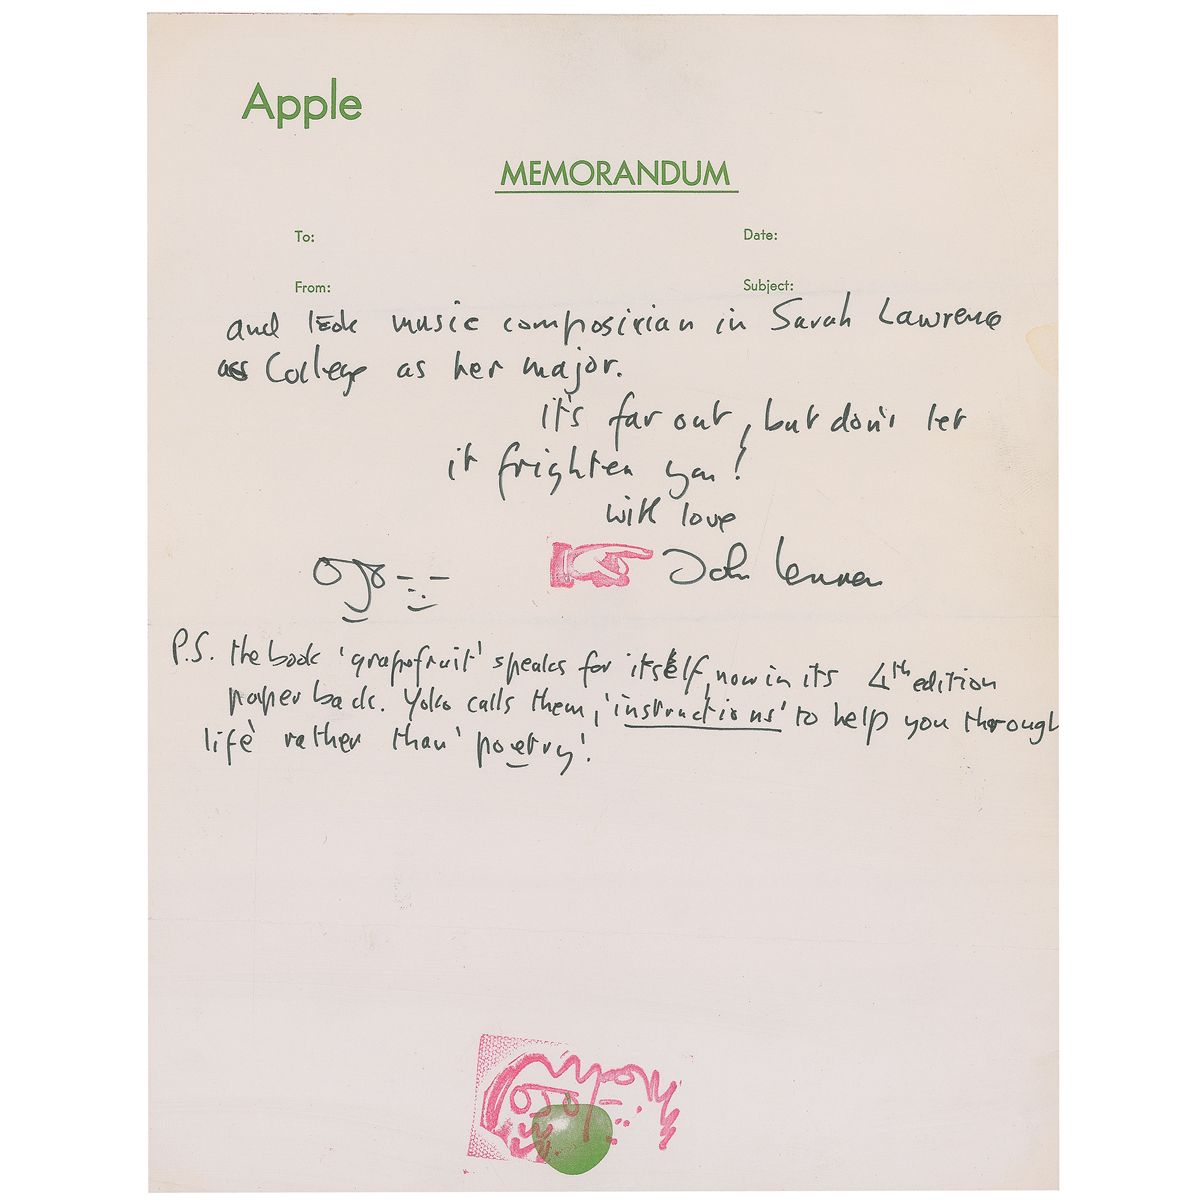 Apple
MEMORANDUM
To:
Date:
From:
Subject:
and took music composition in Sarah Lawrence
College as her major.
it's far out, but don't let
it frighten you!
with love
John Lennon
P.S. the book 'grapefruit' speaks for itself, now in its 4th edition
paperback. Yoko calls them, 'instructions' to help you through
life' rather than 'poetry'.